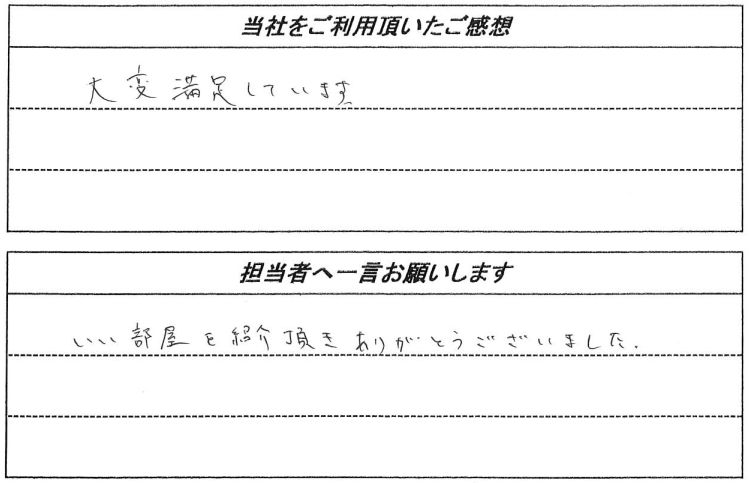 当社をご利用頂いたご感想
大変満足しています
担当者へ一言お願いします
いい部屋を紹介頂きありがとうございました.